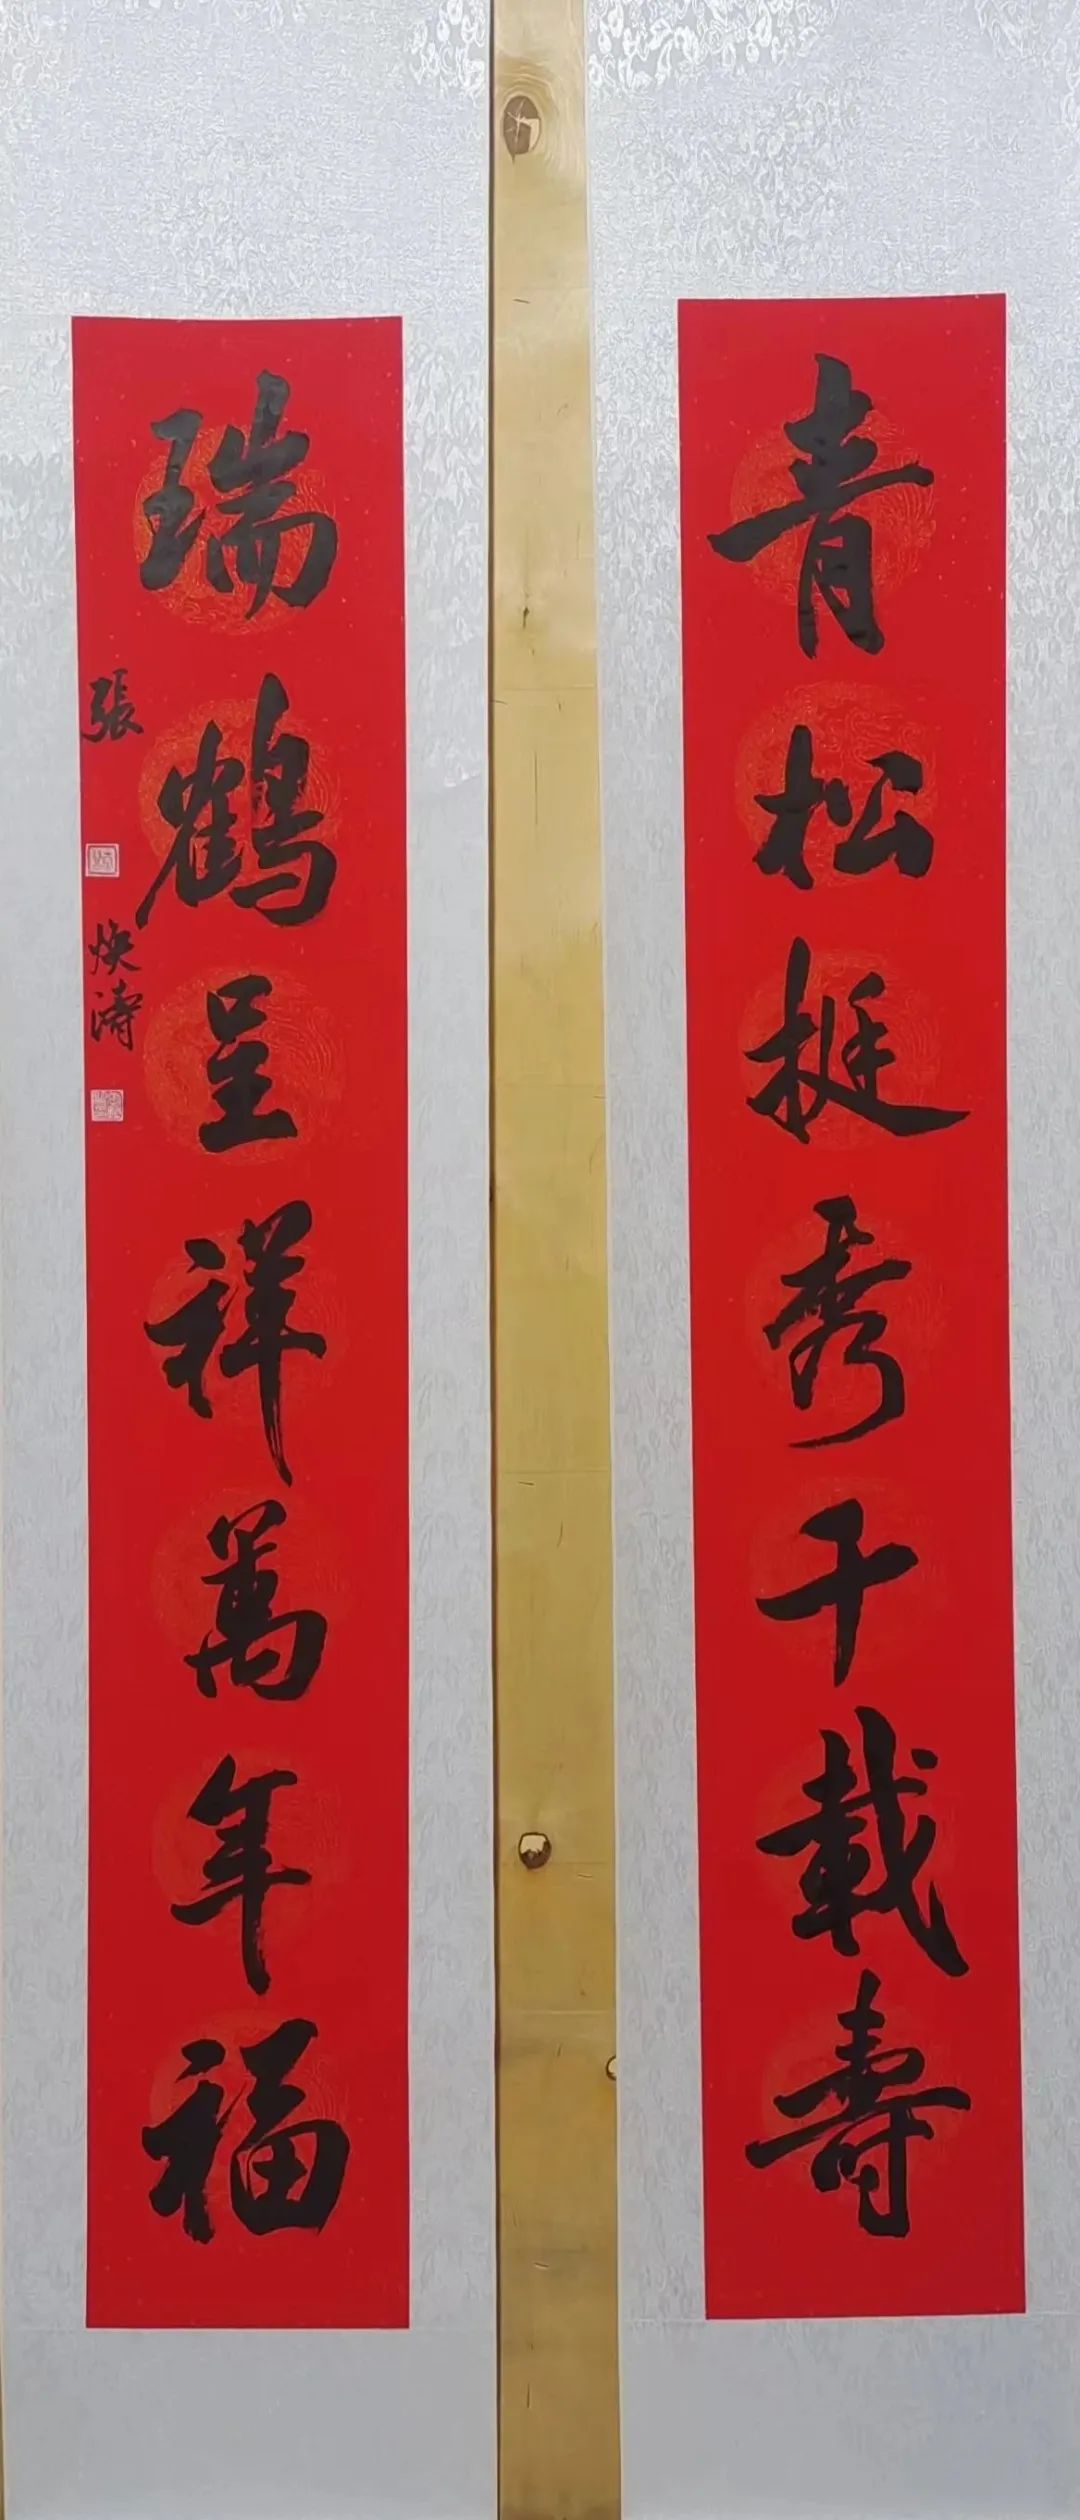 青松挺秀千載壽
瑞鶴呈祥萬年福
張
煥濤